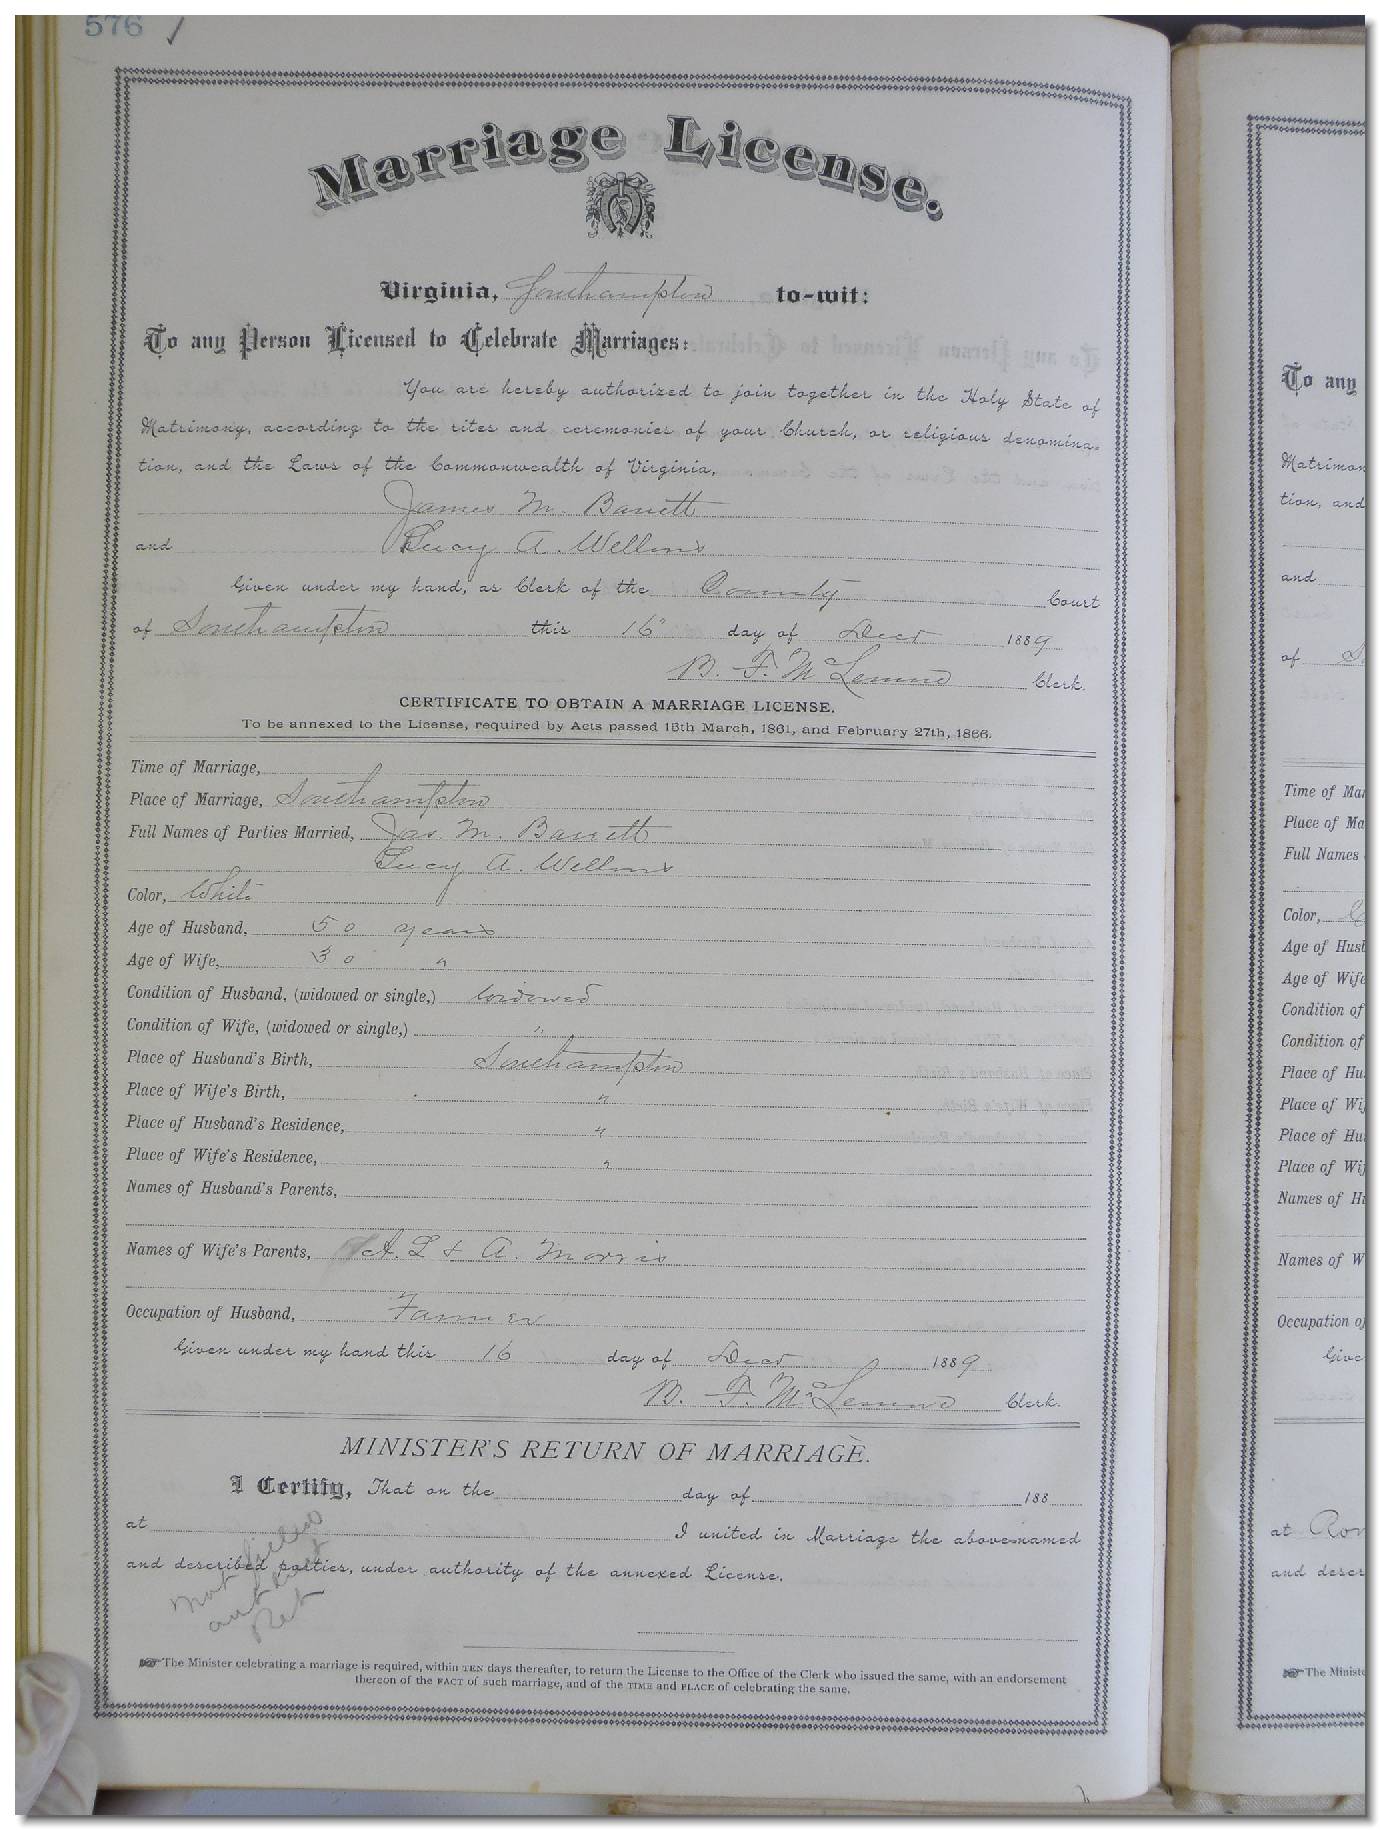 576
Marriage License.
Virginia, Southampton to-wit:
To any Person Licensed to Celebrate Marriages:
You are hereby authorized to join together in the Holy State of
Matrimony, according to the rites and ceremonies of your Church, or religious denomina-
tion, and the Laws of the Commonwealth of Virginia,
James M. Barrett
and Lucy A. Wellons
Given under my hand, as Clerk of the County Court
of Southampton this 16" day of Decr 1889
B. F. McLemore Clerk.
CERTIFICATE TO OBTAIN A MARRIAGE LICENSE.
To be annexed to the License, required by Acts passed 15th March, 1861, and February 27th, 1866.
Time of Marriage,
Place of Marriage, Southampton
Full Names of Parties Married, Jas. M. Barrett
Lucy A. Wellons
Color, White
Age of Husband, 50 years
Age of Wife, 30 "
Condition of Husband, (widowed or single,) widowed
Condition of Wife, (widowed or single,) "
Place of Husband's Birth, Southampton
Place of Wife's Birth, "
Place of Husband's Residence, "
Place of Wife's Residence, "
Names of Husband's Parents,
Names of Wife's Parents, A. L & A. Morris
Occupation of Husband, Farmer
Given under my hand this 16 day of Decr 1889
B. F. McLemore Clerk.
MINISTER'S RETURN OF MARRIAGE.
I Certify, That on the day of 188
at I united in Marriage the above-named
and described parties, under authority of the annexed License.
not filled
out
Ret
☞ The Minister celebrating a marriage is required, within TEN days thereafter, to return the License to the Office of the Clerk who issued the same, with an endorsement
thereon of the FACT of such marriage, and of the TIME and PLACE of celebrating the same.
To any
Matrimon
tion, and
and
of S
Time of Ma
Place of Ma
Full Names
Color,
Age of Husb
Age of Wife
Condition of
Condition of
Place of Hu
Place of Wi
Place of Hu
Place of Wi
Names of H
Names of W
Occupation o
Give
at
and descr
☞ The Ministe